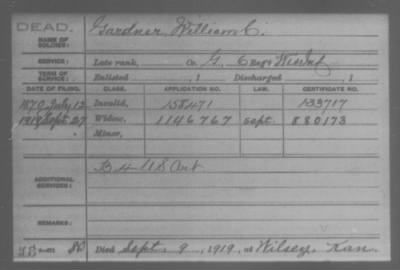 DEAD.
NAME OF SOLDIER: Gardner, William C.
SERVICE: Late rank, Co. G, 6 Reg't Wis Inf
TERM OF SERVICE: Enlisted , 1 Discharged , 1
DATE OF FILING. CLASS. APPLICATION NO. LAW. CERTIFICATE NO.
1870 July 12 Invalid, 158471 133717
1919 Sept 27 Widow, 1146767 Sept. 880173
Minor,
ADDITIONAL SERVICES: B 4 U S Art
REMARKS:
Died Sept. 9, 1919, at Wilsey, Kan.